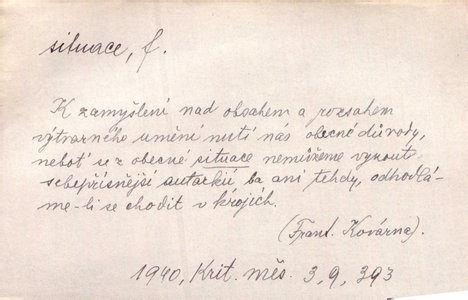 situace, f.
K zamyšlení nad obsahem a rozsahem
výtvarného umění nutí nás obecné důvody,
neboť se z obecné situace nemůžeme vynout
sebepřísnější autarkií ba ani tehdy, odhodlá-
me-li se chodit v krojích.
(Frant. Kovárna).
1940, Krit. měs. 3, 9, 393